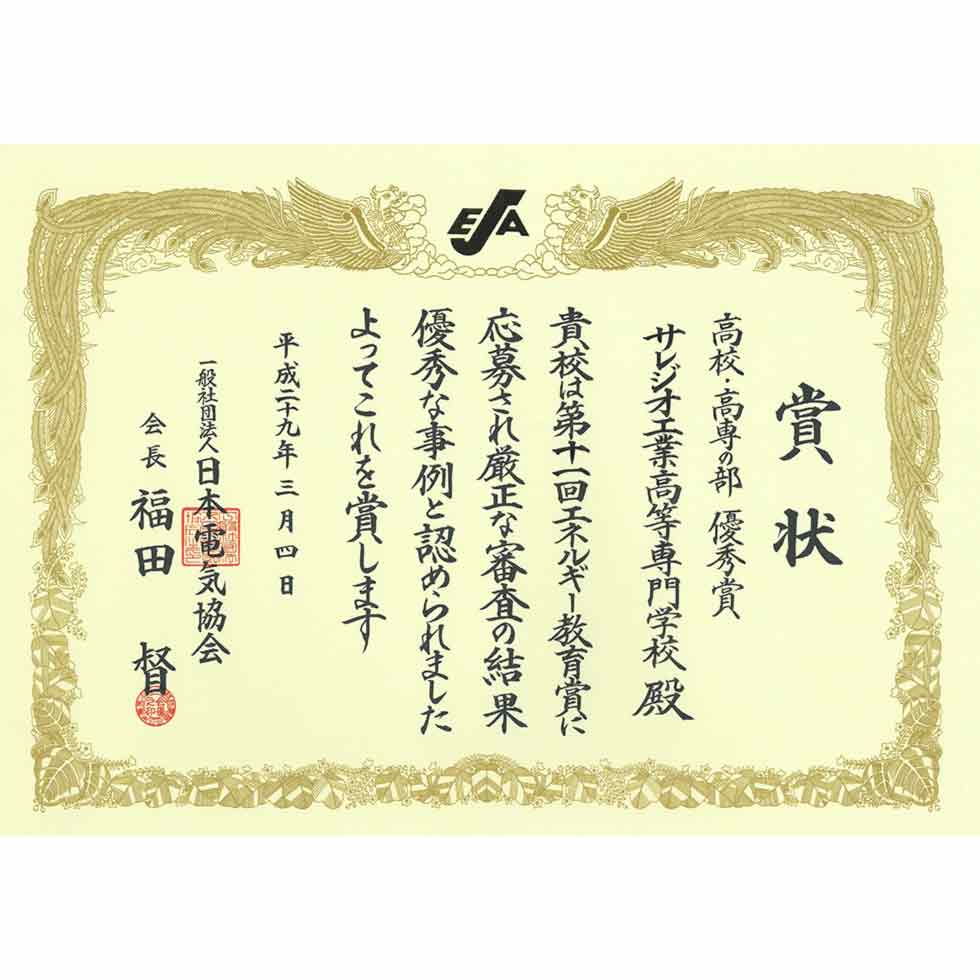 EJA
賞状
高校・高専の部 優秀賞
サレジオ工業高等専門学校 殿
貴校は第十一回エネルギー教育賞に
応募され厳正な審査の結果
優秀な事例と認められました
よってこれを賞します
平成二十九年 三月四日
一般社団法人 日本電気協会
会長 福田 督